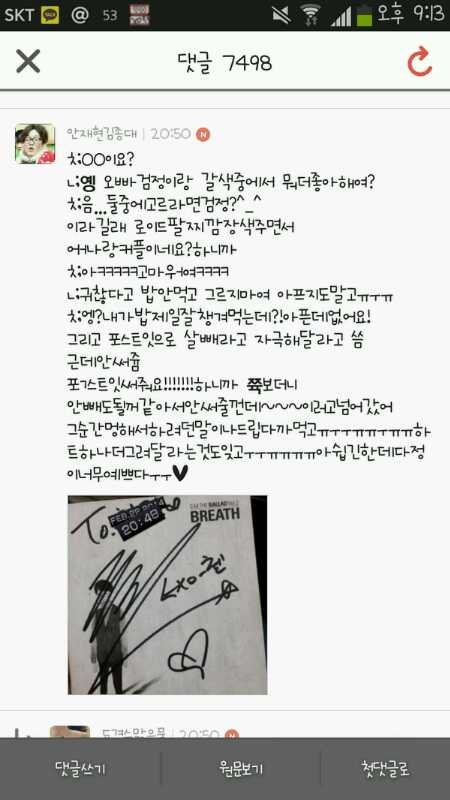 SKT @ 53 오후 9:13
댓글 7498
안재현김종대 | 20:50 N
ㅊ;〇〇이요?
ㄴ;옝 오빠검정이랑 갈색중에서 뭐더좋아해여?
ㅊ;음,,,둘중에고르라면검정?^_^
이라길래 로이드팔찌깜장색주면서
어!나랑커플이네요?하니까
ㅊ;아ㅋㅋㅋㅋㅋ고마우여ㅋㅋㅋㅋ
ㄴ;귀찮다고 밥안먹고 그르지마여 아프지도말고ㅠㅜㅠ
ㅊ;엥?내가밥제일잘챙겨먹는데?!아픈데없어요!
그리고 포스트잇으로 살빼라고 자극해달라고 씀
근데안써쥼
포ㄱ스트잇써줘요!!!!!!!하니까 쮹보더니
안빼도될꺼같아서안써줄껀데~~~이러고넘어갔어
그순간멍해서하려던말이나드립다까먹고ㅠㅜㅜㅠㅠㅜㅠㅠ하
트하나더그려달라는것도잊고ㅜㅜㅠㅠㅠㅠ아쉽긴한데다정
이너무예쁘다ㅜㅜ♥
To.
FEB.22.2014
20:48
S.M. THE BALLAD Vol.2
BREATH
EXO-첸
| 20:50 N
댓글쓰기 원문보기 첫댓글로